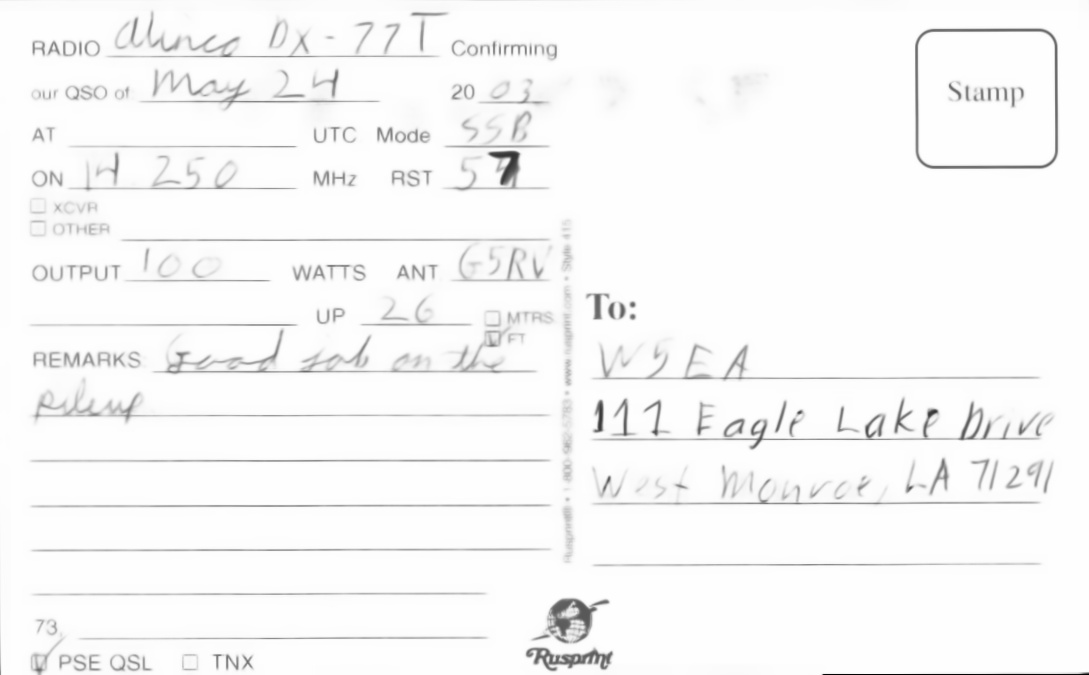 RADIO Alinco DX-77T Confirming
our QSO of May 24 2003
AT UTC Mode SSB
ON 14 250 MHz RST 57
XCVR
OTHER
OUTPUT 100 WATTS ANT G5RV
UP 26 MTRS
FT
REMARKS Good job on the
pileup
73,
PSE QSL TNX
Rusprint® • 1-800-962-5783 • www.rusprint.com • Style 415
Stamp
To:
W5EA
111 Eagle Lake Drive
West Monroe, LA 71291
Rusprint